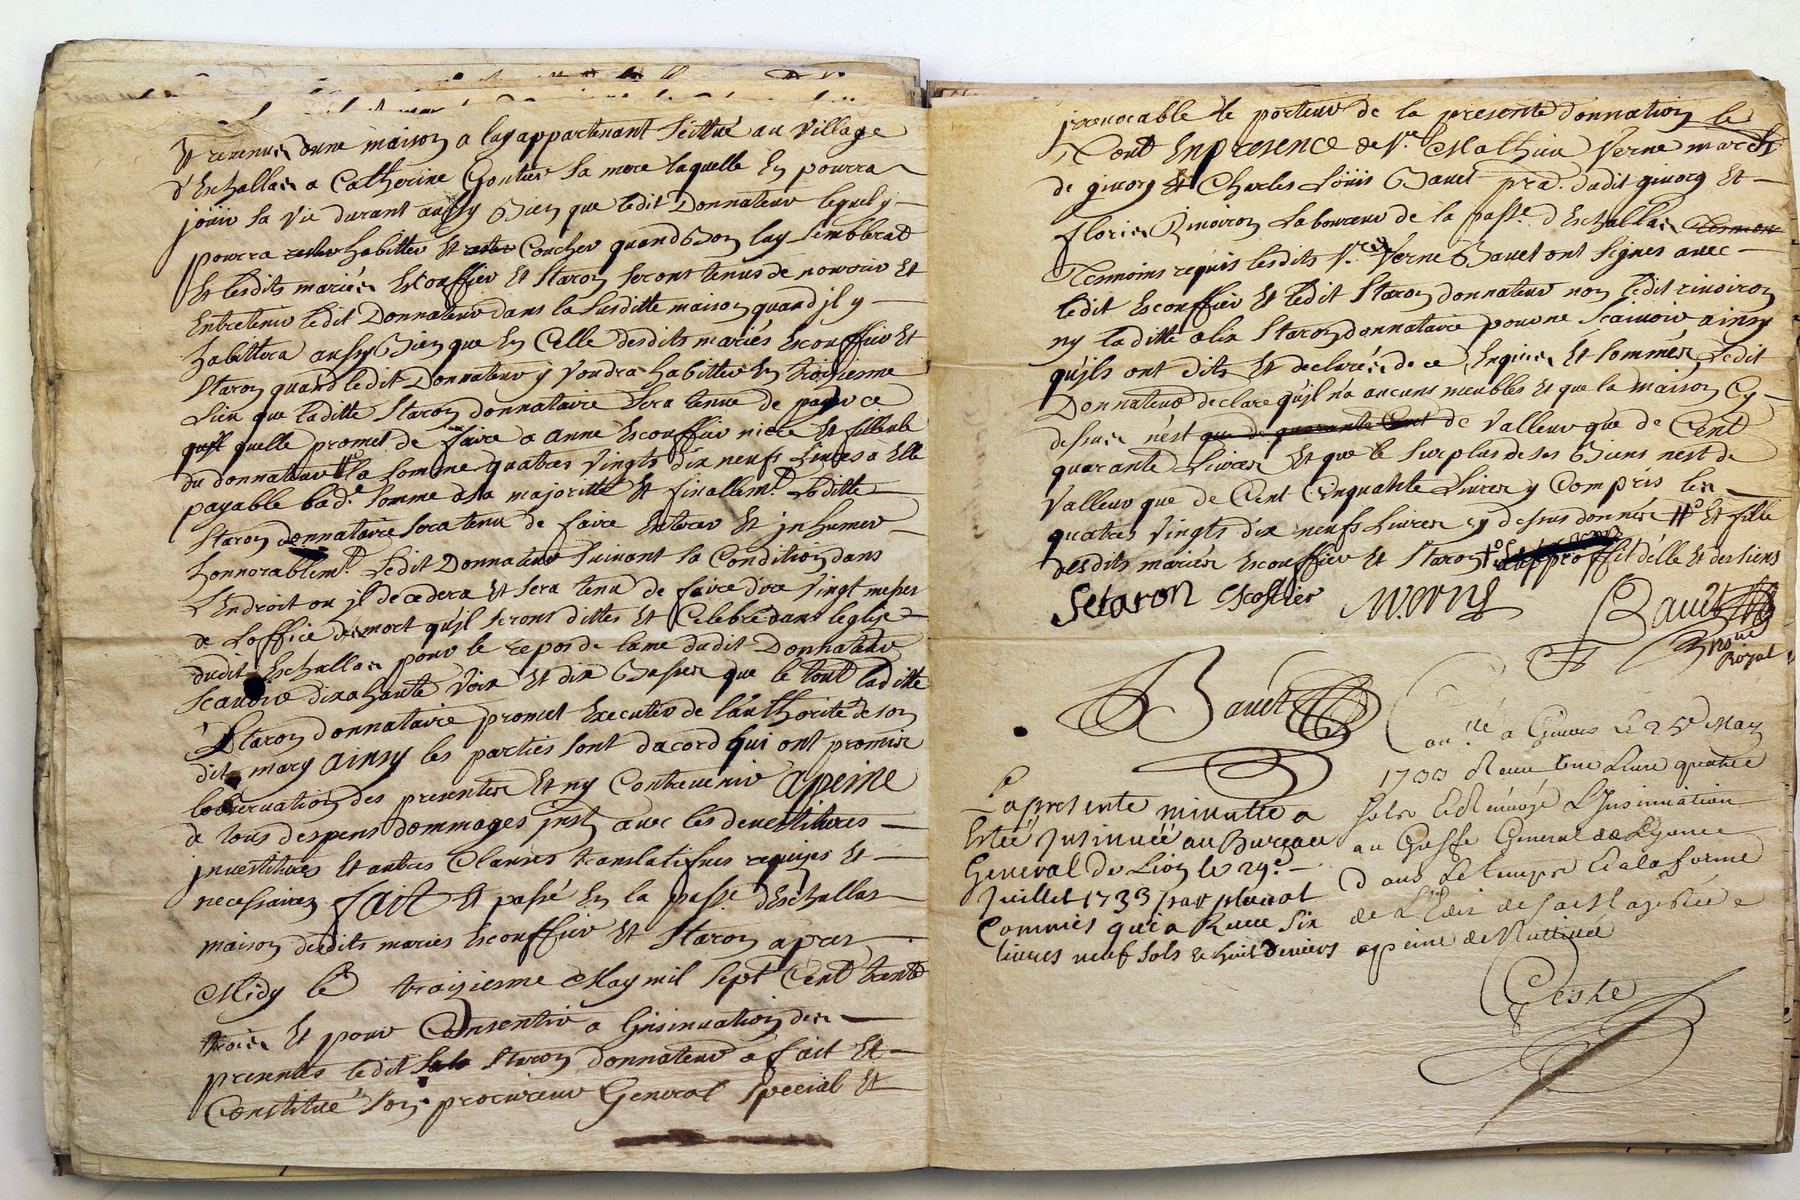 et revenus d'une maison a luy appartenant scittué au village
d'Eschallas a Catherine Gontier sa mere laquelle en pourra
jouir sa vie durant aussy bien que ledit Donnateur lequel y
pourra habitter et coucher quand bon luy semblerat
Et lesdits mariés Escouffier et Staron seront tenus de nourrir et
Entretenir ledit Donnateur dans la susditte maison quand jl y
habittera aussy bien que en Celle desdits mariés Escouffier et
Staron quand ledit Donnateur y voudra habitter en troisiesme
Lieu que laditte Staron donnataire sera tenue de payer ce
quelle promet de faire a anne Escouffier niece et filleule
du donnateur la somme quatres vingts dix neufs Livres a Elle
payable lad.e somme a sa majoritté et finallem.t Laditte
Staron donnataire sera tenu de faire Enterer et jnhumer
honnorablem.t Ledit Donnateur suivant sa Condition dans
L'endroit ou jl decedera et sera tenu de faire dire vingt messes
de Loffice des mort qu'jl seront dittes et Celebré dans leglise
dudit Eschallas pour le repos de lame dudit Donnateur
scavoir dix a haute voix et dix basses que le tout laditte
Staron donnataire promet Executer de l'authorité de son
dit mary ainsy les parties sont dacord qui ont promis
lobservation des presentes Et ny Contrevenir apeine
de tous despens dommages jnst avec les devestitures
jnvestitures Et autres Clauses translatifves requises et
necessaires fait et passé En la pass.e d'Eschallas
maison desdits mariés Escouffier et Staron apres
Midy le traiziesme May mil sept Cent trante
trois Et pour Consentir a Linsinuation des
presentes ledit Staron donnateur a fait et
Constitué son procureur General special et
jrrevocable le porteur de la presente donnation le
Tout En presence de s.r Mathieu Verne march
de givors et Charles Loüis Bauet pra.d dudit givors et
floris Rinoiron Laboureur de la pass.e d'Eschallas
Tesmoins requis lesdits s.rs Verne Bauet ont signés avec
ledit Escouffier et ledit Staron donnateur non ledit rinoiron
ny laditte alix Staron donnataire pour ne scavoir ainsy
qu'jls ont dits et declarés de ce Enquis et sommés, Ledit
Donnateur declare qu'jl n'a aucuns meubles et que la maison Cy
dessus n'est que de quarante Cent de valleur que de Cent
quarante Livres et que le surplus de ses biens nest de
valleur que de Cent Cinquante Livres y Compris les
quatres vingts dix neufs Livres cy dessus donnés et fille
desdits mariés Escouffier et Staron proffit d'elle et des siens
Setaron Escoffier M Verne Bauet
Bauet
no.re
Royal
Con.llé a Givors Le 25e May
1733 Receu Une Livre quatre
sols Et Renvoyé L'Insinuation
au Greffe General de Lyon
dans Le temps Et a la forme
de L'Edit de sa Majestée
a peine de Nullitée
Geste
La presente minutte a
Estée Jnsinuée au Bureau
General de Lion le 29e
Juillet 1733 par
Commis qui a Receu Six
Livres neuf sols & huit deniers